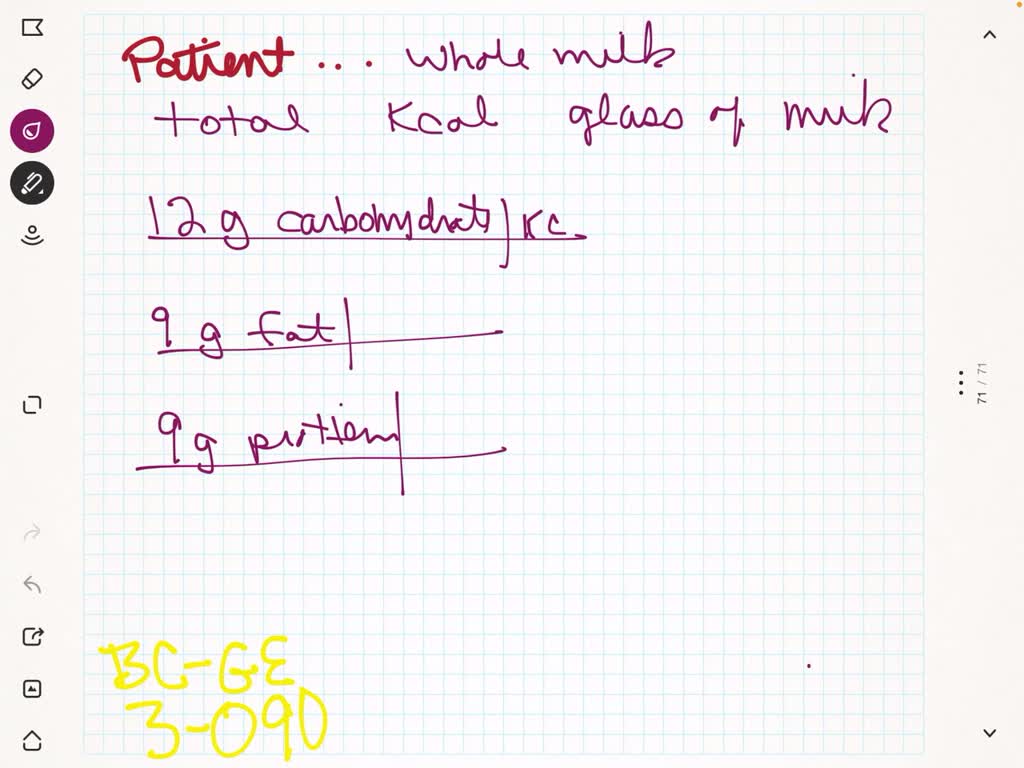 Patient ... whole milk
total Kcal glass of milk
12g carbohydrats KC.
9 g fat
9g protien
BC-GE
3-090
71 / 71